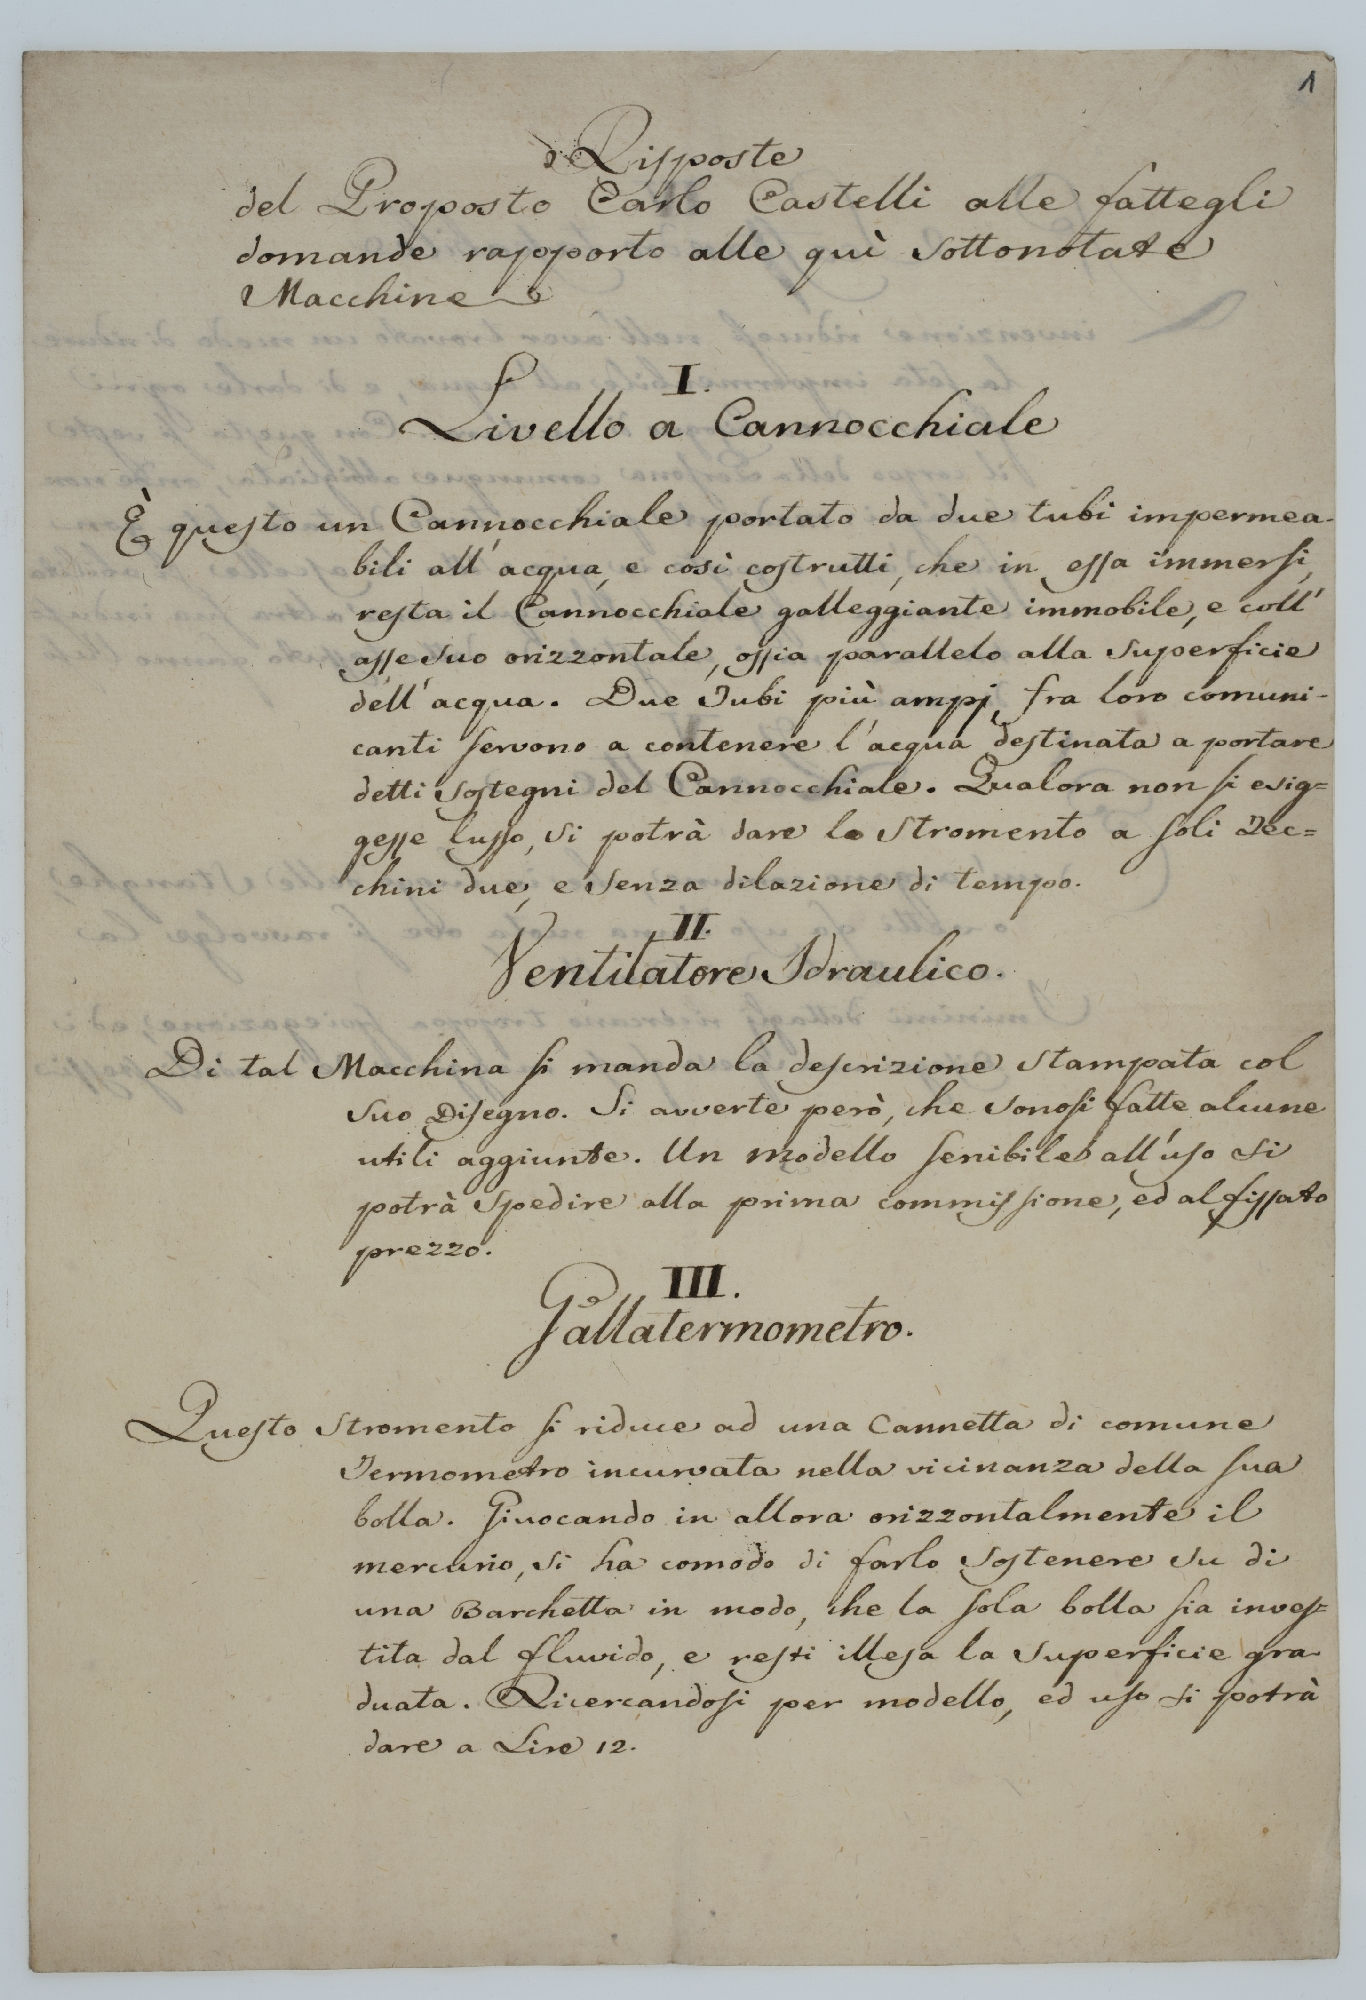 1
Risposte
del Proposto Carlo Castelli alle fattegli
domande rapporto alle quì sottonotate
Macchine
I.
Livello a Cannocchiale
È questo un Cannocchiale portato da due tubi impermea-
bili all'acqua, e così costrutti, che in essa immersi,
resta il Cannocchiale galleggiante immobile, e coll'
asse suo orizzontale, ossia parallelo alla superficie
dell'acqua. Due Tubi più ampj, fra loro comuni-
canti servono a contenere l'acqua destinata a portare
detti sostegni del Cannocchiale. Qualora non si esig=
gesse lusso, si potrà dare lo stromento a soli Zec=
chini due, e senza dilazione di tempo.
II.
Ventilatore Idraulico.
Di tal Macchina si manda la descrizione stampata col
suo Disegno. Si avverte però, che sonosi fatte alcune
utili aggiunte. Un modello senibile all'uso si
potrà spedire alla prima commissione, ed al fissato
prezzo.
III.
Gallatermometro.
Questo stromento si riduce ad una Cannetta di comune
Termometro incurvata nella vicinanza della sua
bolla. Giuocando in allora orizzontalmente il
mercurio, si ha comodo di farlo sostenere su di
una Barchetta in modo, che la sola bolla sia inves=
tita dal fluvido, e resti illesa la superficie gra-
duata. Ricercandosi per modello, ed uso si potrà
dare a Lire 12.